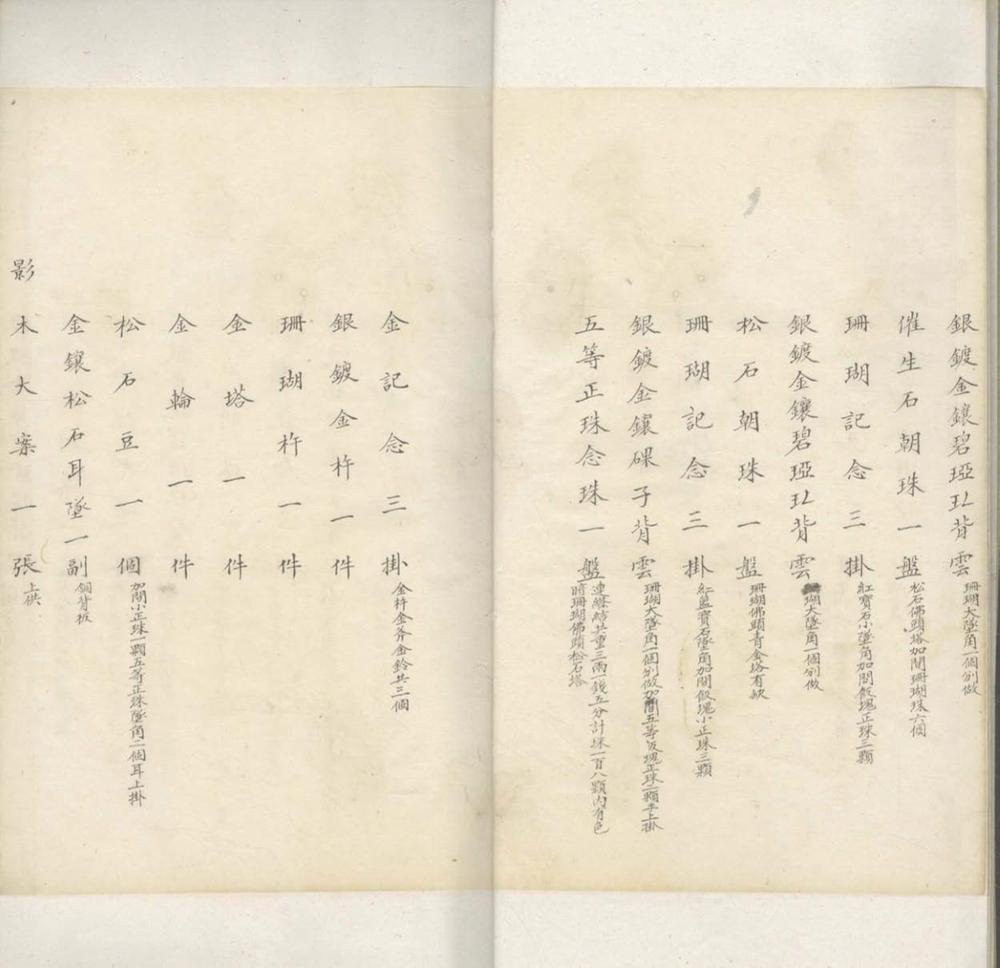 銀鍍金鑲碧㻞𤣥背雲 珊瑚大墜角一個別做
催生石朝珠一盤 松石佛頭塔加間珊瑚珠六個
珊瑚記念三掛 紅寶石小墜角加間飯塊正珠三顆
銀鍍金鑲碧㻞𤣥背雲 瑚大墜角一個別做
松石朝珠一盤 珊瑚佛頭青金塔有缺
珊瑚記念三掛 紅藍寶石墜角加間飯塊小正珠三顆
銀鍍金鑲碟子背雲 珊瑚大墜角一個別做加間五等飯塊正珠二顆手上掛
五等正珠念珠一盤 連絛結共重三兩一錢五分計珠一百八顆內有色
暗珊瑚佛頭松石塔
金記念三掛 金杵金斧金鈴共三個
銀鍍金杵一件
珊瑚杵一件
金塔一件
金輪一件
松石豆一個 加間小正珠一顆五等正珠墜角二個耳上掛
金鑲松石耳墜一副 銅背板
影木大案一張 上供